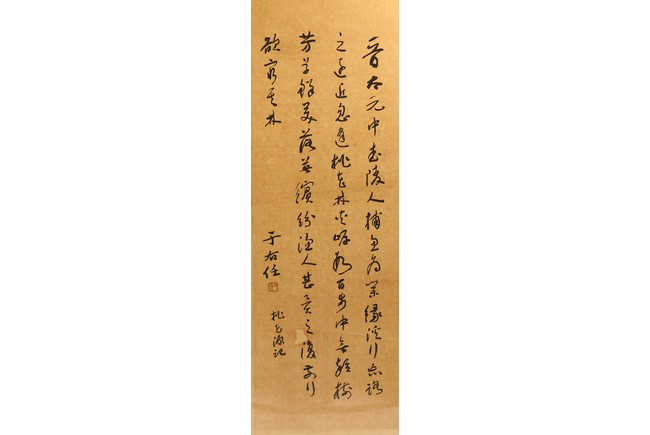 晉太元中武陵人捕魚為業緣溪行忘路
之遠近忽逢桃花林夾岸數百步中無雜樹
芳草鮮美落英繽紛漁人甚異之復前行
欲窮其林
桃花源記
于右任